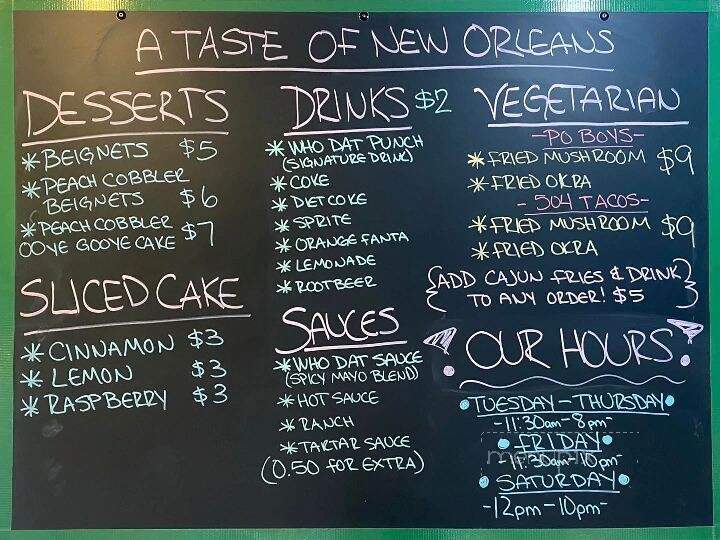 A TASTE OF NEW ORLEANS
DESSERTS
* BEIGNETS $5
* PEACH COBBLER
BEIGNETS $6
* PEACH COBBLER
OOYE GOOYE CAKE $7
SLICED CAKE
* CINNAMON $3
* LEMON $3
* RASPBERRY $3
DRINKS $2
* WHO DAT PUNCH
(SIGNATURE DRINK)
* COKE
* DIET COKE
* SPRITE
* ORANGE FANTA
* LEMONADE
* ROOTBEER
SAUCES
* WHO DAT SAUCE
(SPICY MAYO BLEND)
* HOT SAUCE
* RANCH
* TARTAR SAUCE
(0.50 FOR EXTRA)
VEGETARIAN
-PO BOYS-
* FRIED MUSHROOM $9
* FRIED OKRA
- 504 TACOS-
* FRIED MUSHROOM $9
* FRIED OKRA
{ADD CAJUN FRIES & DRINK
TO ANY ORDER! $5}
! OUR HOURS !
• TUESDAY - THURSDAY •
-11:30am-8pm-
• FRIDAY •
-11:30am-10pm-
• SATURDAY •
-12pm-10pm-